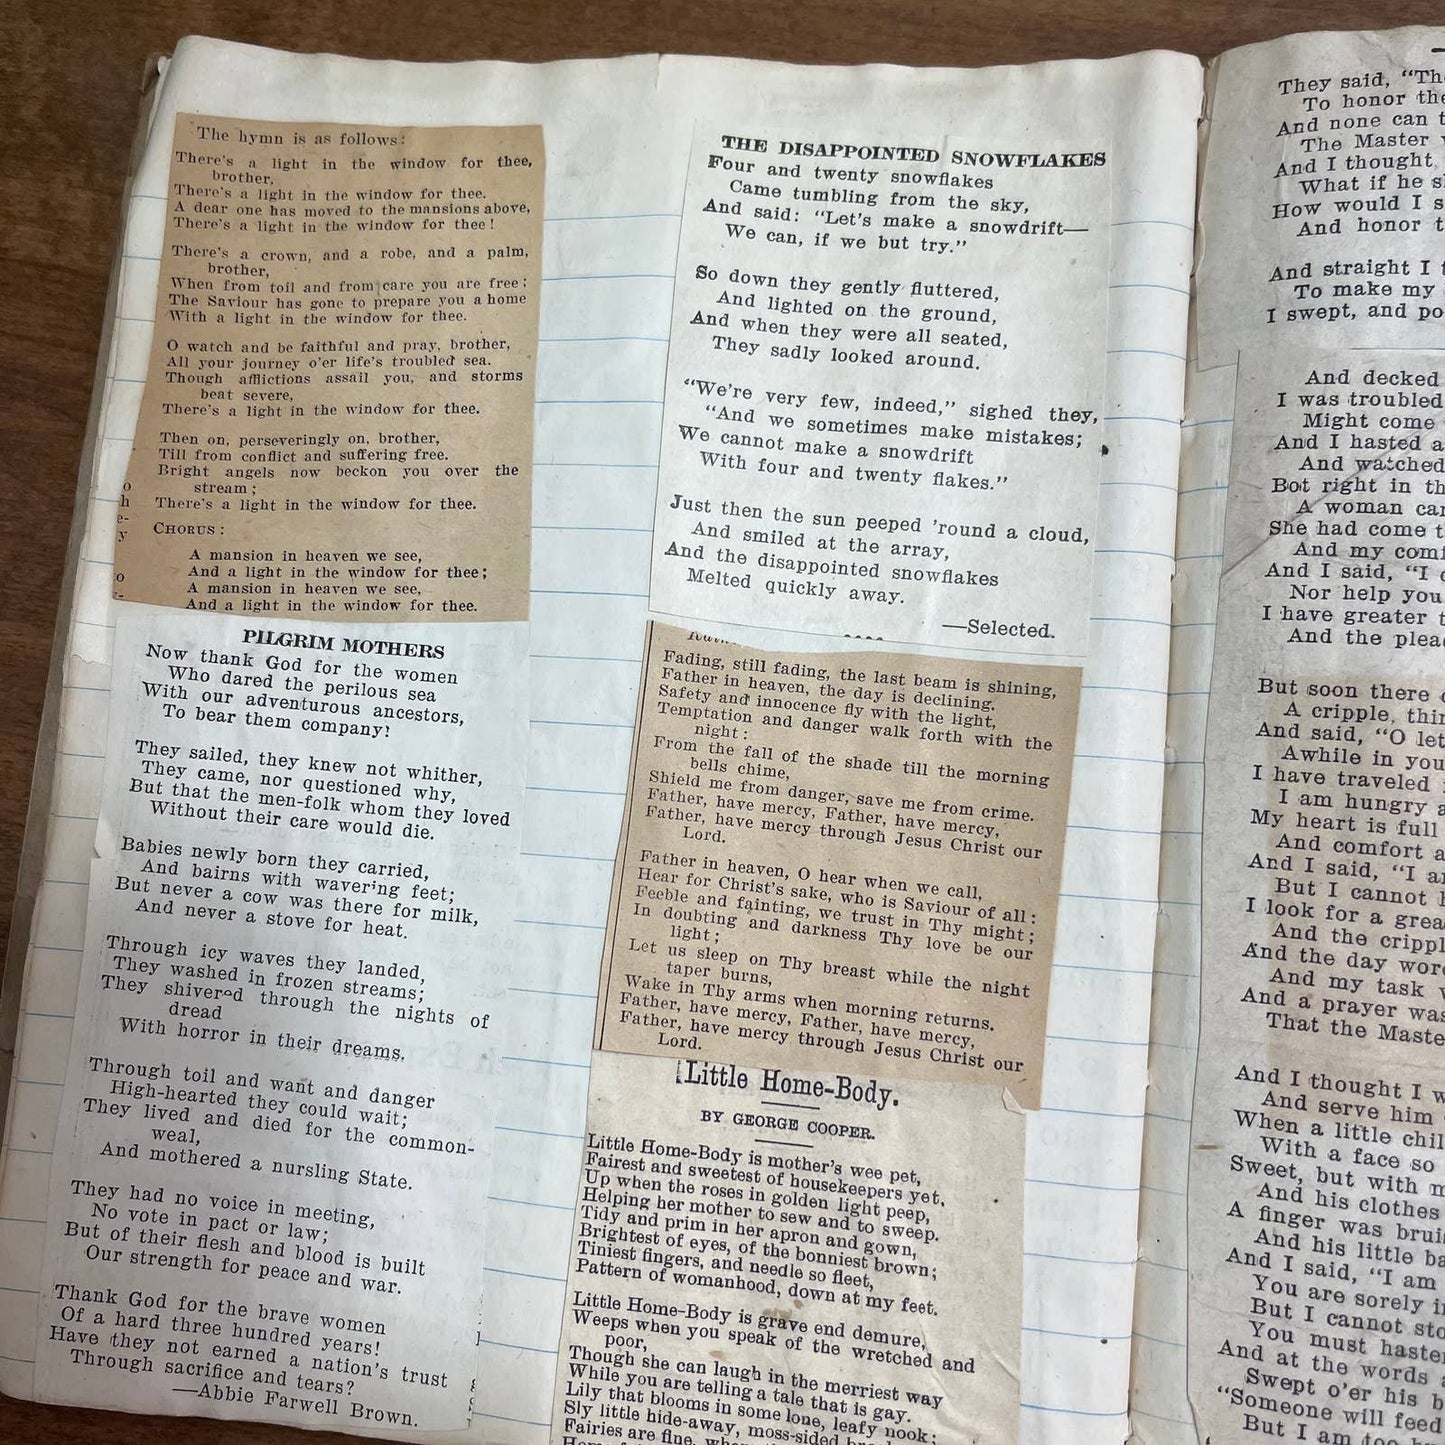 The hymn is as follows:
There's a light in the window for thee,
brother,
There's a light in the window for thee.
A dear one has moved to the mansions above,
There's a light in the window for thee!
There's a crown, and a robe, and a palm,
brother,
When from toil and from care you are free:
The Saviour has gone to prepare you a home
With a light in the window for thee.
O watch and be faithful and pray, brother,
All your journey o'er life's troubled sea.
Though afflictions assail you, and storms
beat severe,
There's a light in the window for thee.
Then on, perseveringly on, brother,
Till from conflict and suffering free.
Bright angels now beckon you over the
stream;
There's a light in the window for thee.
CHORUS:
A mansion in heaven we see,
And a light in the window for thee;
A mansion in heaven we see,
And a light in the window for thee.
o
h
e-
y
o
PILGRIM MOTHERS
Now thank God for the women
Who dared the perilous sea
With our adventurous ancestors,
To bear them company!
They sailed, they knew not whither,
They came, nor questioned why,
But that the men-folk whom they loved
Without their care would die.
Babies newly born they carried,
And bairns with wavering feet;
But never a cow was there for milk,
And never a stove for heat.
Through icy waves they landed,
They washed in frozen streams;
They shivered through the nights of
dread
With horror in their dreams.
Through toil and want and danger
High-hearted they could wait;
They lived and died for the common-
weal,
And mothered a nursling State.
They had no voice in meeting,
No vote in pact or law;
But of their flesh and blood is built
Our strength for peace and war.
Thank God for the brave women
Of a hard three hundred years!
Have they not earned a nation's trust
Through sacrifice and tears?
—Abbie Farwell Brown.
THE DISAPPOINTED SNOWFLAKES
Four and twenty snowflakes
Came tumbling from the sky,
And said: "Let's make a snowdrift—
We can, if we but try."
So down they gently fluttered,
And lighted on the ground,
And when they were all seated,
They sadly looked around.
"We're very few, indeed," sighed they,
"And we sometimes make mistakes;
We cannot make a snowdrift
With four and twenty flakes."
Just then the sun peeped 'round a cloud,
And smiled at the array,
And the disappointed snowflakes
Melted quickly away.
—Selected.
Fading, still fading, the last beam is shining,
Father in heaven, the day is declining.
Safety and innocence fly with the light,
Temptation and danger walk forth with the
night:
From the fall of the shade till the morning
bells chime,
Shield me from danger, save me from crime.
Father, have mercy, Father, have mercy,
Father, have mercy through Jesus Christ our
Lord.
Father in heaven, O hear when we call,
Hear for Christ's sake, who is Saviour of all:
Feeble and fainting, we trust in Thy might;
In doubting and darkness Thy love be our
light;
Let us sleep on Thy breast while the night
taper burns,
Wake in Thy arms when morning returns.
Father, have mercy, Father, have mercy,
Father, have mercy through Jesus Christ our
Lord.
Little Home-Body.
BY GEORGE COOPER.
Little Home-Body is mother's wee pet,
Fairest and sweetest of housekeepers yet.
Up when the roses in golden light peep,
Helping her mother to sew and to sweep.
Tidy and prim in her apron and gown,
Brightest of eyes, of the bonniest brown;
Tiniest fingers, and needle so fleet,
Pattern of womanhood, down at my feet.
Little Home-Body is grave end demure,
Weeps when you speak of the wretched and
poor,
Though she can laugh in the merriest way
While you are telling a tale that is gay.
Lily that blooms in some lone, leafy nook;
Sly little hide-away, moss-sided
Fairies are fine,
They said,
To honor the
And none can
The Master
And I thought,
What if he
How would I
And honor
And straight I
To make my
I swept, and
And decked
I was troubled
Might come
And I hasted
And watched
Bot right in
A woman
She had come
And my
And I said, "I
Nor help you
I have greater
And the
But soon there
A cripple,
And said, "O
Awhile in
I have traveled
I am hungry
My heart is full
And comfort
And I said, "I
But I cannot
I look for a
And the
And the day
And my task
And a prayer
That the
And I thought I
And serve him
When a little
With a face so
Sweet, but with
And his clothes
A finger was
And his little
And I said, "I am
You are sorely
But I cannot
You must
And at the words
Swept o'er his
"Someone will feed
But I am